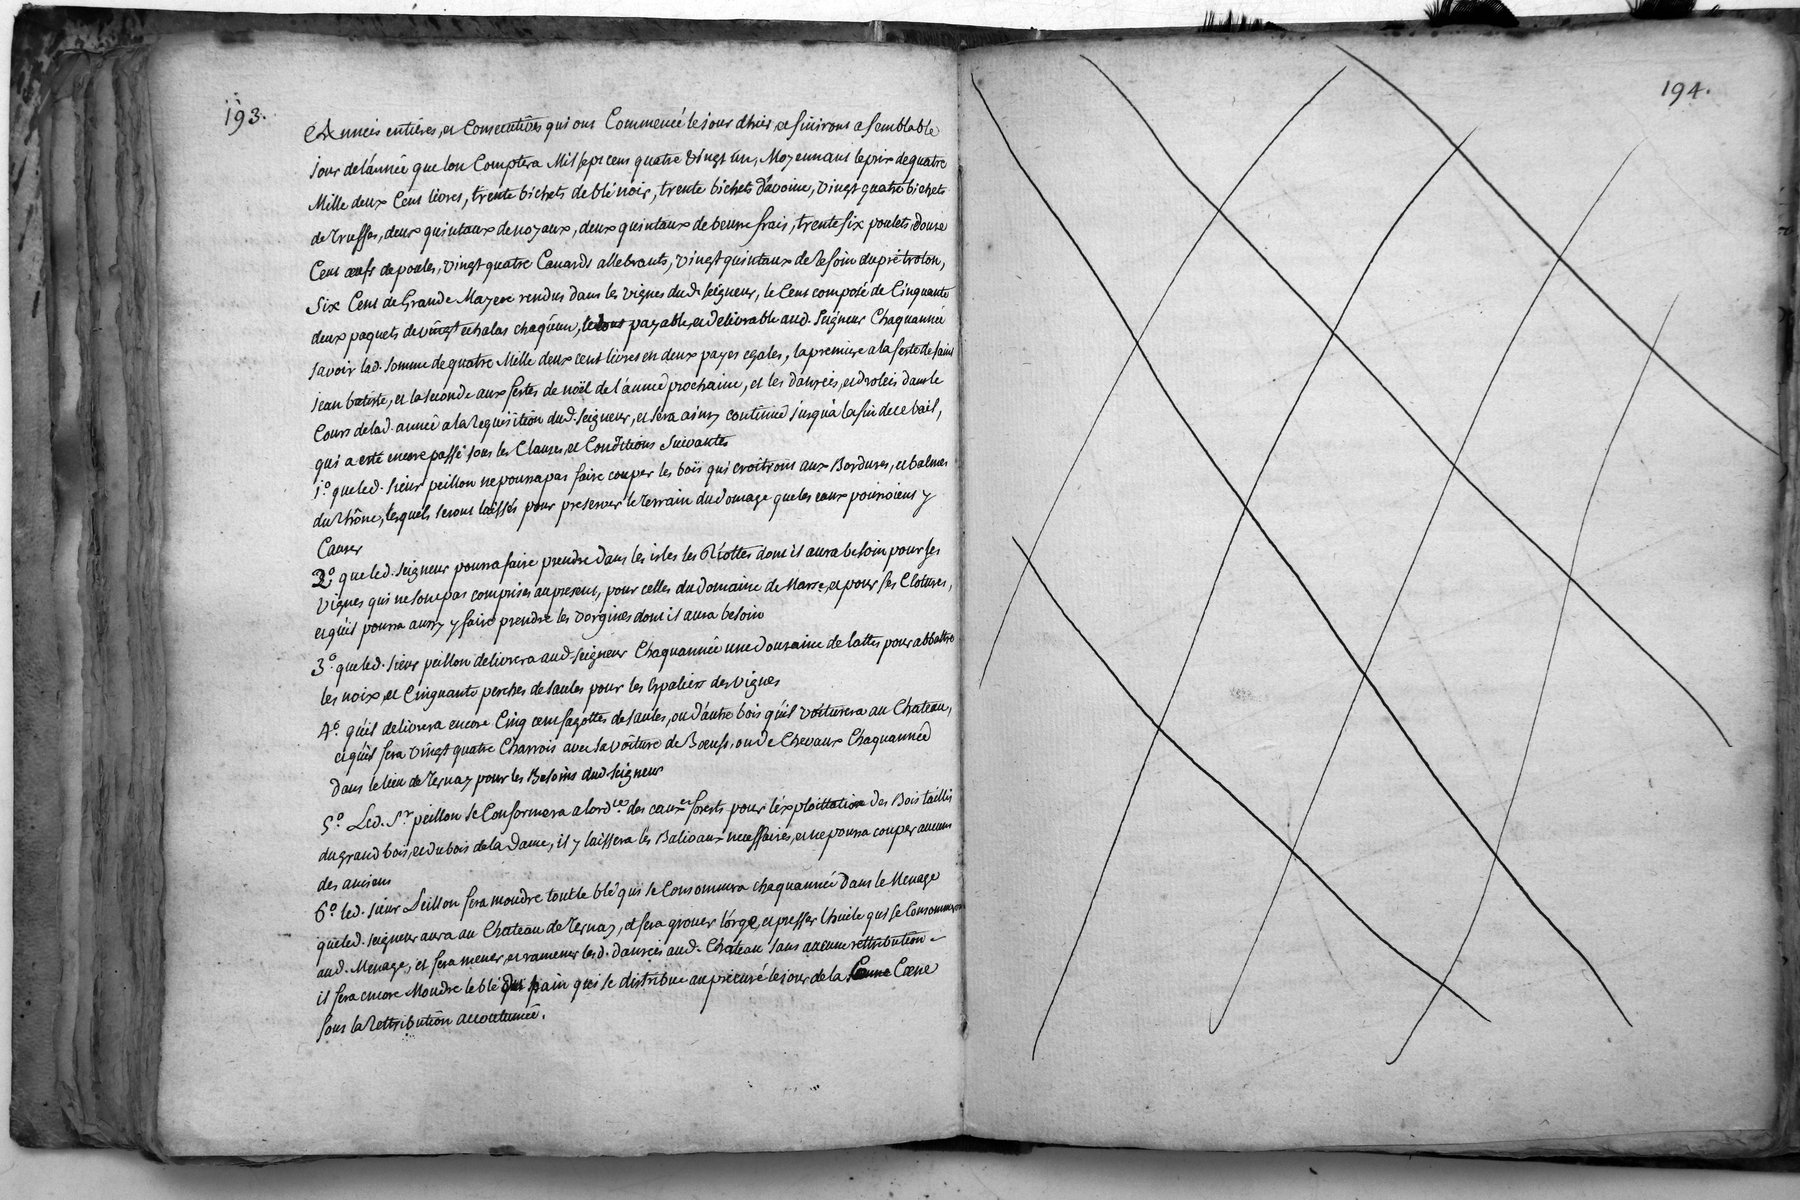 193.
Années entières, et Consecutives qui ont Commencé le jour d'hier, et finiront a semblable
jour de l'année que lon Comptera Mil sept cens quatre vingt un, Moyennant le prix de quatre
Mille deux Cens livres, trente bichets de blé noir, trente bichets d'avoine, vingt quatre bichets
de truffes, deux quintaux de noyaux, deux quintaux de beurre frais, trente six poulets, douze
Cens œufs de poules, vingt quatre Canards allebrants, vingt quintaux de foin du pré trolon,
Six Cens de Grande Mayere rendus dans les vignes dud. seigneur, le Cens composé de Cinquante
deux paquets de vingt echalas chaqu'un, le tout payable, et delivrable aud. Seigneur Chaquannée
savoir lad. somme de quatre Mille deux cent livres en deux payes egales, la premiere a la feste de saint
jean batiste, et la seconde aux festes de noël de l'année prochaine, et les danrées, et dans le
Cours de lad. année a la Requisition dud. seigneur, et sera ainsy continué jusqu'a la fin de ce bail,
qui a esté encore passé sous les Clauses, et Conditions suivantes
1.° que led. sieur peillon ne pourra pas faire couper les bois qui croîtront aux Bordures, et balmes
du Rhône, lesquels seront laissés pour preserver le terrain du domage que les eaux pourroient y
Causer
2.° que led. seigneur pourra faire prendre dans les isles les Riottes dont il aura besoin pour ses
vignes qui ne sont pas comprises au present, pour celles du domaine de Marse, et pour ses Clotures,
et qu'il pourra aussy y faire prendre les vorgines dont il aura besoin
3.° que led. sieur peillon delivrera aud. seigneur Chaquannée une douzaine de lattes pour abbattre
les noix, et Cinquante perches de saules pour les Espaliers des vignes
4.° qu'il delivrera encore Cinq cens fagottes de saules, ou d'autre bois qu'il voiturera au Chateau,
et qu'il fera vingt quatre Charrois avec sa voiture de Bœufs, ou de Chevaux Chaquannée
dans le lieu de Ternay pour les Besoins dud. seigneur
5.° Led. Sr. peillon se Conformera a lord.ce des eaux et forests pour l'exploittation des Bois taillis
du grand bois, et du bois de la Dame, il y laissera les Baliveaux necessaires, et ne pourra couper aucuns
des anciens
6.° led. sieur Peillon fera moudre tout le blé qui se Consommera chaquannée dans le Menage
que led. seigneur aura au Chateau de Ternay, et fera gruer l'orge, et presser l'huile qui se Consommera
aud. Menage, et fera mener, et ramener lesd. danrées aud. Chateau sans aucune rettribution
il fera encore Moudre le blé du pain qui se distribue au prieuré le jour de la Cœne
sous la Rettribution accoutumée.
194.